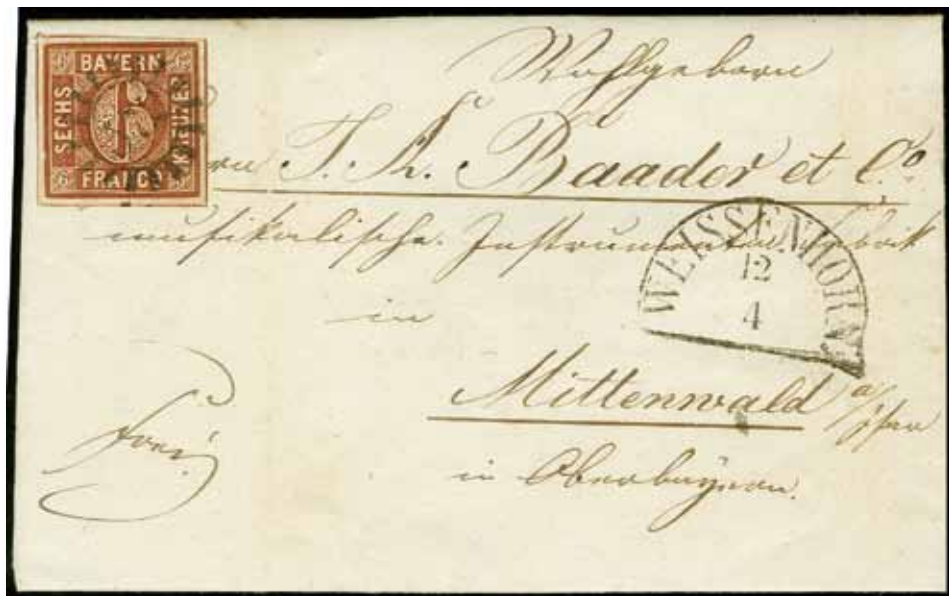 BAYERN
SECHS
KREUZER
FRANCO
6 6 6 6
6
Wohlgeborn
J. A. Baader et Co.
musikalische Instrumenten Fabrik
WEISSENHORN
12
4
in
Mittenwald a/Isar
in Oberbayern.
frei